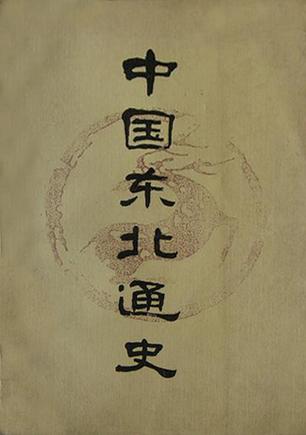 中国东北通史